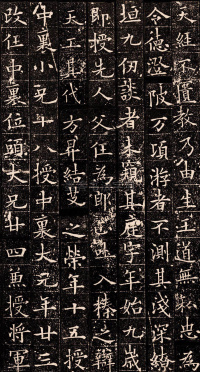 天經不匱教乃由生王道無私忠為
令德澄陂万頃游者不測其淺深繚
垣九仞談者未窺其庭宇年始九歲
即授先人父任為郎入榛之辯
天工其代方昇結艾之榮年十五授
中裏小兄十八授中裏大兄年廿三
改任中裏位頭大兄廿四兼授將軍